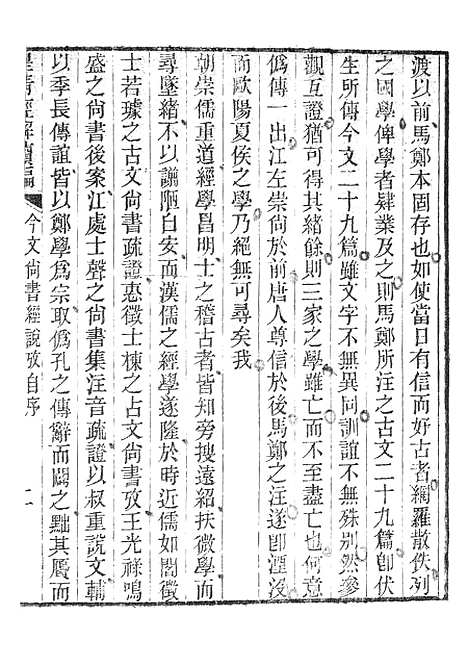 渡以前馬鄭本固存也如使當日有信而好古者網羅散佚列
之國學俾學者肄業及之則馬鄭所注之古文二十九篇卽伏
生所傳今文二十九篇雖文字不無異同訓誼不無殊別然參
觀互證猶可得其緒餘則三家之學雖亡而不至盡亡也何意
僞傳一出江左崇尙於前唐人尊信於後馬鄭之注遂卽湮沒
而歐陽夏侯之學乃絕無可尋矣我
朝崇儒重道經學昌明士之稽古者皆知旁搜遠紹扶微學而
尋墜緒不以譾陋自安而漢儒之經學遂隆於時近儒如閻徵
士若璩之古文尙書疏證惠徵士棟之古文尙書攷王光祿鳴
盛之尙書後案江處士聲之尙書集注音疏證以叔重說文輔
以季長傳誼皆以鄭學爲宗取僞孔之傳辭而闢之黜其贗而
皇清經解續編 今文尙書經說攷自序 二